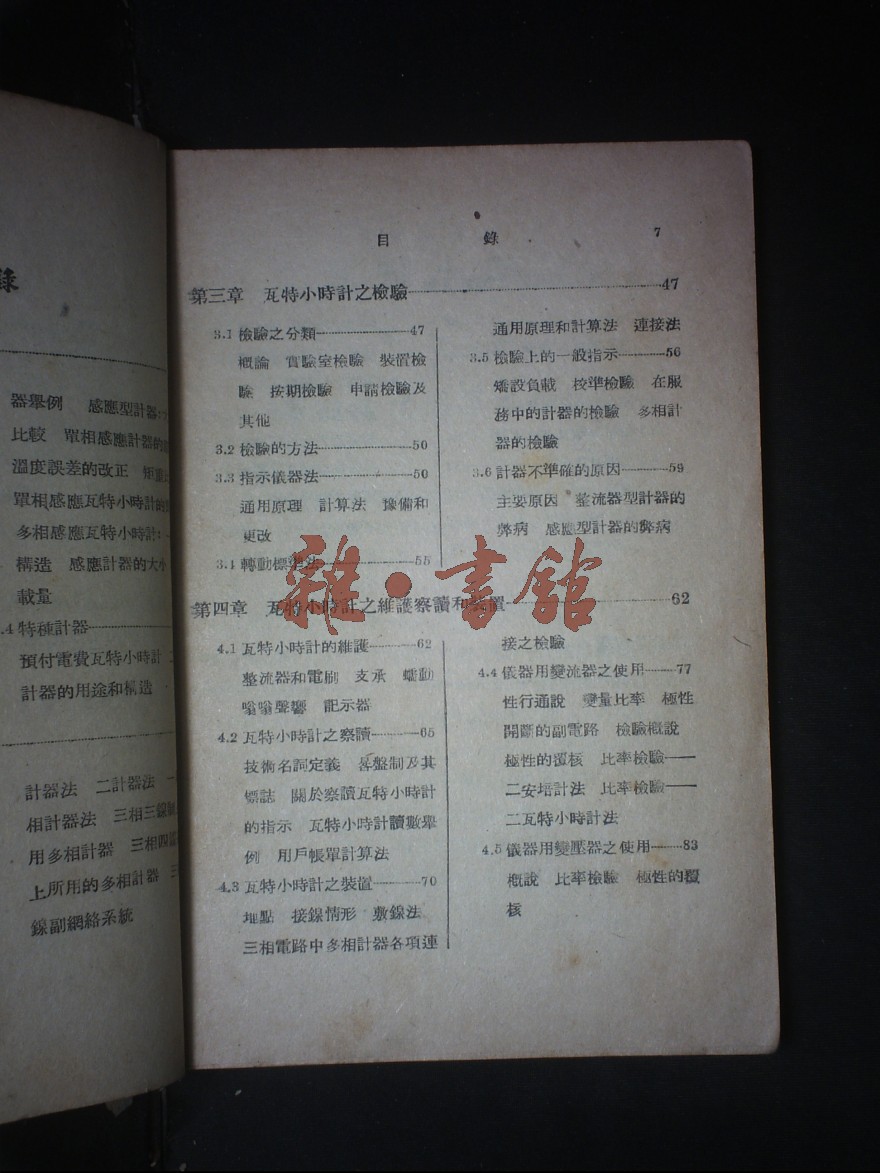 錄
器舉例 感應型計器:
比較 單相感應計器的
溫度誤差的改正
單相感應瓦特小時計的
多相感應瓦特小時計:
構造 感應計器的大小
載量
.4 特種計器
預付電費瓦特小時計
計器的用途和構造
計器法 二計器法
相計器法 三相三線制
用多相計器 三相四線
上所用的多相計器
線副網絡系統
目 錄 7
第三章 瓦特小時計之檢驗 47
3.1 檢驗之分類 47
概論 實驗室檢驗 裝置檢
驗 按期檢驗 申請檢驗及
其他
3.2 檢驗的方法 50
3.3 指示儀器法 50
通用原理 計算法 豫備和
更改
3.4 轉動標準法 55
通用原理和計算法 連接法
3.5 檢驗上的一般指示 56
矯設負載 校準檢驗 在服
務中的計器的檢驗 多相計
器的檢驗
3.6 計器不準確的原因 59
主要原因 整流器型計器的
弊病 感應型計器的弊病
第四章 瓦特小時計之維護察讀和裝置 62
4.1 瓦特小時計的維護 62
整流器和電刷 支承 蠕動
嗡嗡聲響 記示器
4.2 瓦特小時計之察讀 65
技術名詞定義 晷盤制及其
標誌 關於察讀瓦特小時計
的指示 瓦特小時計讀數舉
例 用戶帳單計算法
4.3 瓦特小時計之裝置 70
地點 接線情形 敷線法
三相電路中多相計器各項連
接之檢驗
4.4 儀器用變流器之使用 77
性行通說 變量比率 極性
開斷的副電路 檢驗概說
極性的覆核 比率檢驗——
二安培計法 比率檢驗——
二瓦特小時計法
4.5 儀器用變壓器之使用 83
概說 比率檢驗 極性的覆
核
雜·書館